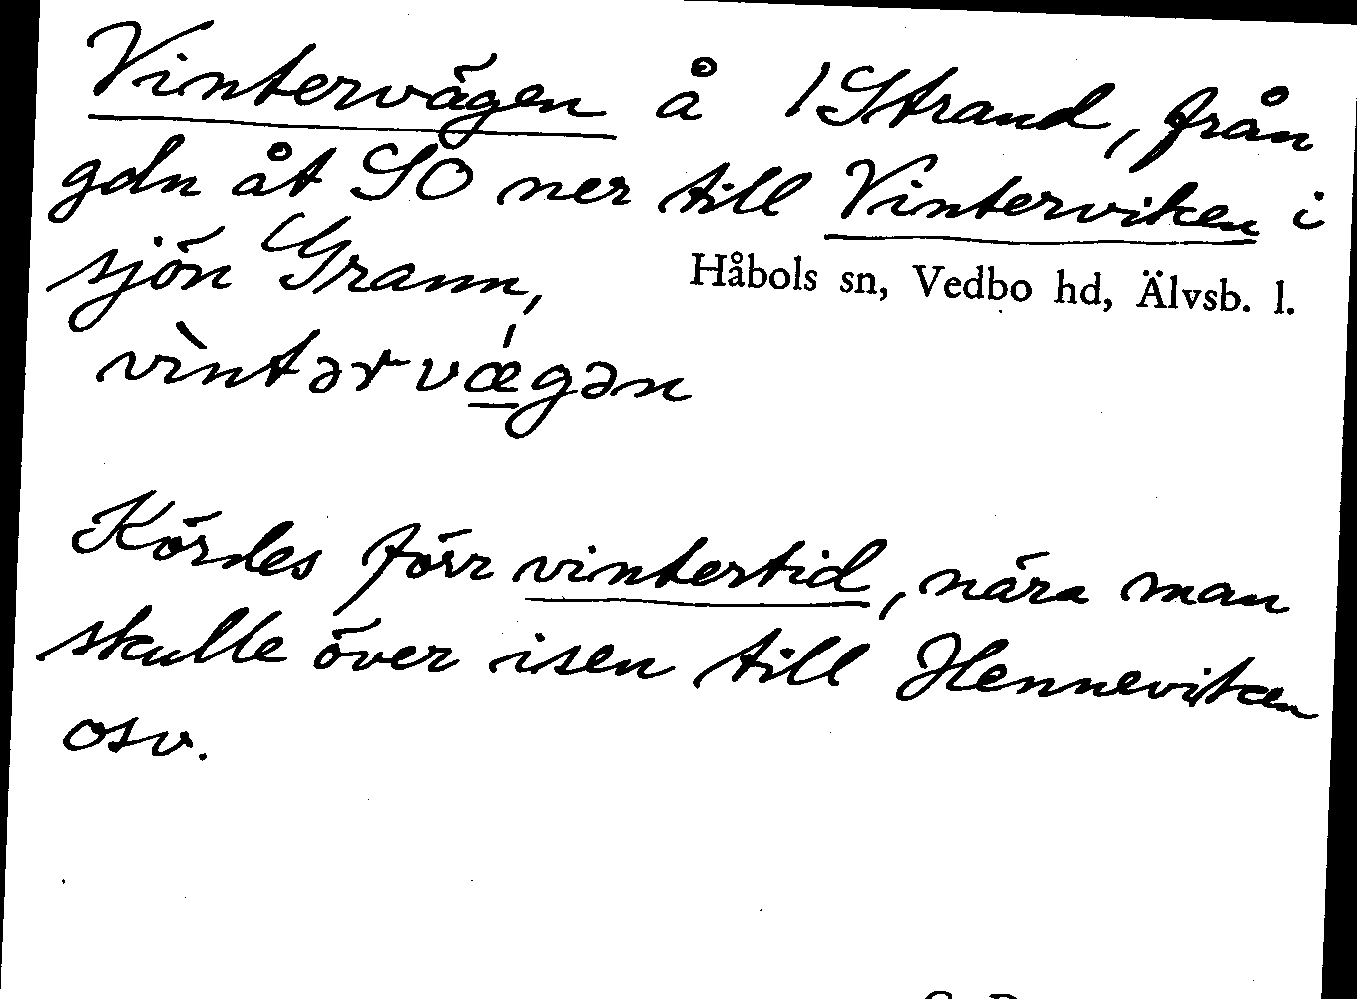 Vintervägen å 1 Strand, från
gdn åt SO ner till Vinterviken i
sjön Grann,
Håbols sn, Vedbo hd, Älvsb. l.
vìntərvǽgən
Kördes förr vintertid, nära man
skulle över isen till Henneviken
osv.